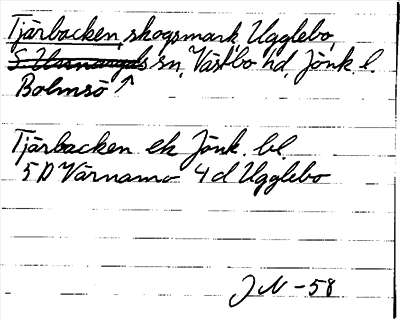 Tjärbacken, skogsmark, Ugglebo,
S. Unnaryds sn, Västbo hd, Jönk. l.
Bolmsö ↑
Tjärbacken ek Jönk. bl.
5 D Värnamo 4 d Ugglebo
JN-58